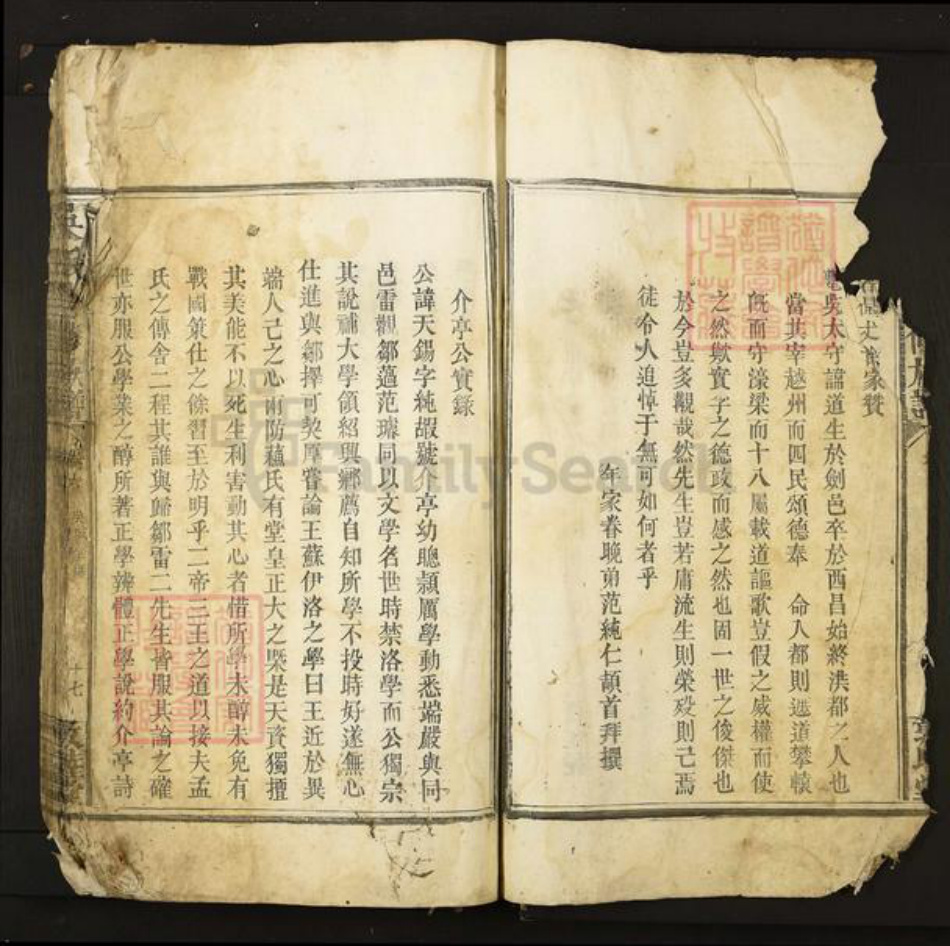 太守諱道生於劍邑卒於西昌始終洪都之人也
當其宰越州而四民頌德奉　命入都則遮道攀轅
既而守濠梁而十八屬載道謳歌豈假之威權而使
之然歟實字之德政而感之然也固一世之俊傑也
於今豈多觀哉然先生豈若庸流生則榮歿則已焉
徒令人追悼于無可如何者乎
年家眷晚弟范純仁頓首拜撰
介亭公實錄
公諱天錫字純嘏號介亭幼聰頴厲學動悉端嚴與同
邑雷觀鄒薖范璿同以文學名世時禁洛學而公獨宗
其說補大學領紹興鄉薦自知所學不投時好遂無心
仕進與鄒擇可契厚嘗論王蘇伊洛之學曰王近於異
端人己之心兩防蘊氏有堂皇正大之槩是天資獨擅
其美能不以死生利害動其心者惜所學未醇未免有
戰國策仕之餘習至於明乎二帝三王之道以接夫孟
氏之傳舍二程其誰與歸鄒雷二先生皆服其論之確
世亦服公學業之醇所著正學辨體正學說約介亭詩
十七
FamilySearch